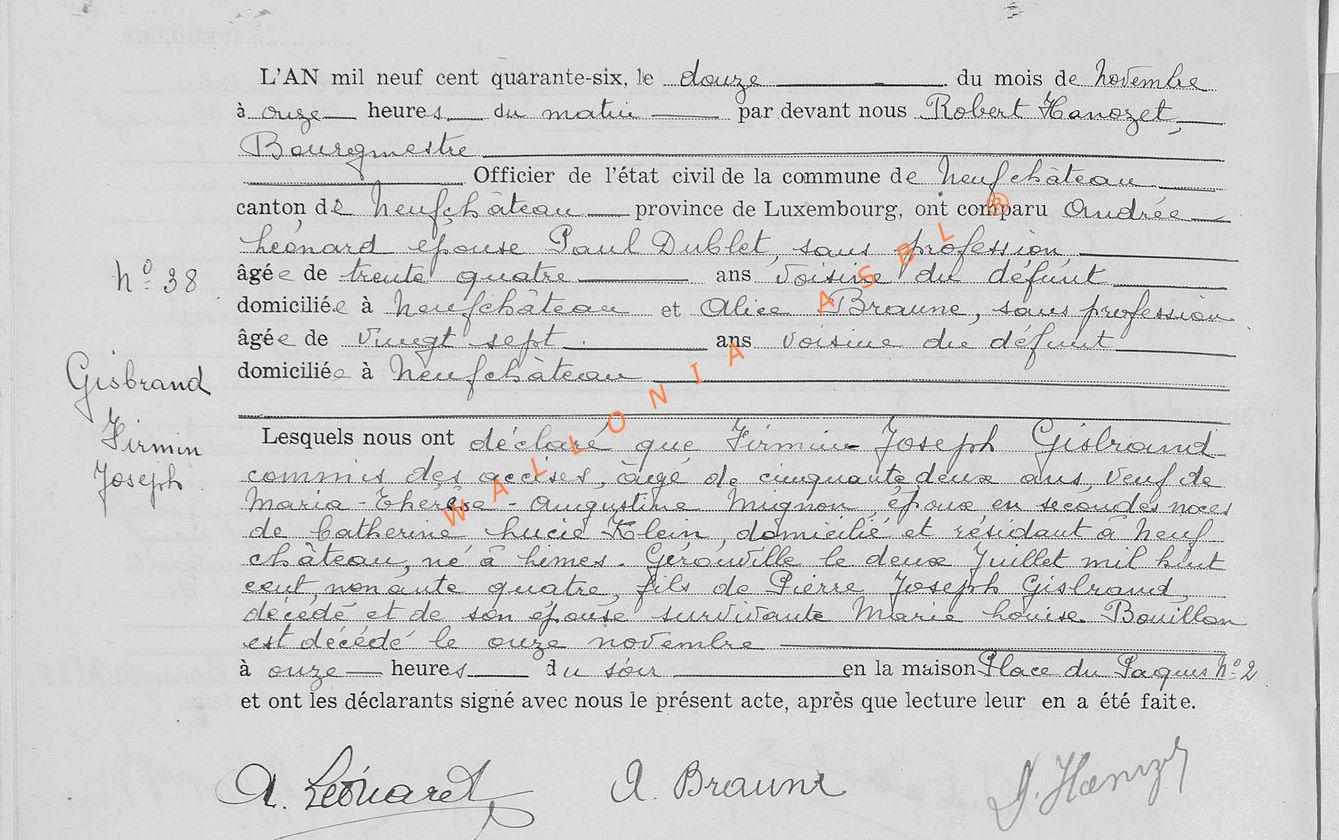 L'AN mil neuf cent quarante-six, le douze du mois de Novembre
à onze heures du matin par devant nous Robert Hanozet,
Bourgmestre
Officier de l'état civil de la commune de Neufchâteau
canton de Neufchâteau province de Luxembourg, ont comparu Andrée
Léonard épouse Paul Dublet, sans profession,
N° 38
âgée de trente quatre ans voisine du défunt
domiciliée à Neufchâteau et Alice Braune, sans profession
âgée de vingt sept ans voisine du défunt
domiciliée à Neufchâteau
Gisbrand
Firmin
Joseph
Lesquels nous ont déclaré que Firmin Joseph Gisbrand
commis des accises, âgé de cinquante deux ans, veuf de
Maria-Therèse-Augustine Mignon, époux en secondes noces
de Catherine Lucie Klein, domicilié et résidant à Neuf
château, né à Limes. Gérouville le deux Juillet mil huit
cent, nonante quatre, fils de Pierre Joseph Gisbrand,
décédé et de son épouse survivante Marie Louise Bouillon
est décédé le onze novembre
à onze heures du soir en la maison Place du Paquis N° 2
et ont les déclarants signé avec nous le présent acte, après que lecture leur en a été faite.
A. Léonard A. Braune Hanozet
WALLONIA ASBL ®